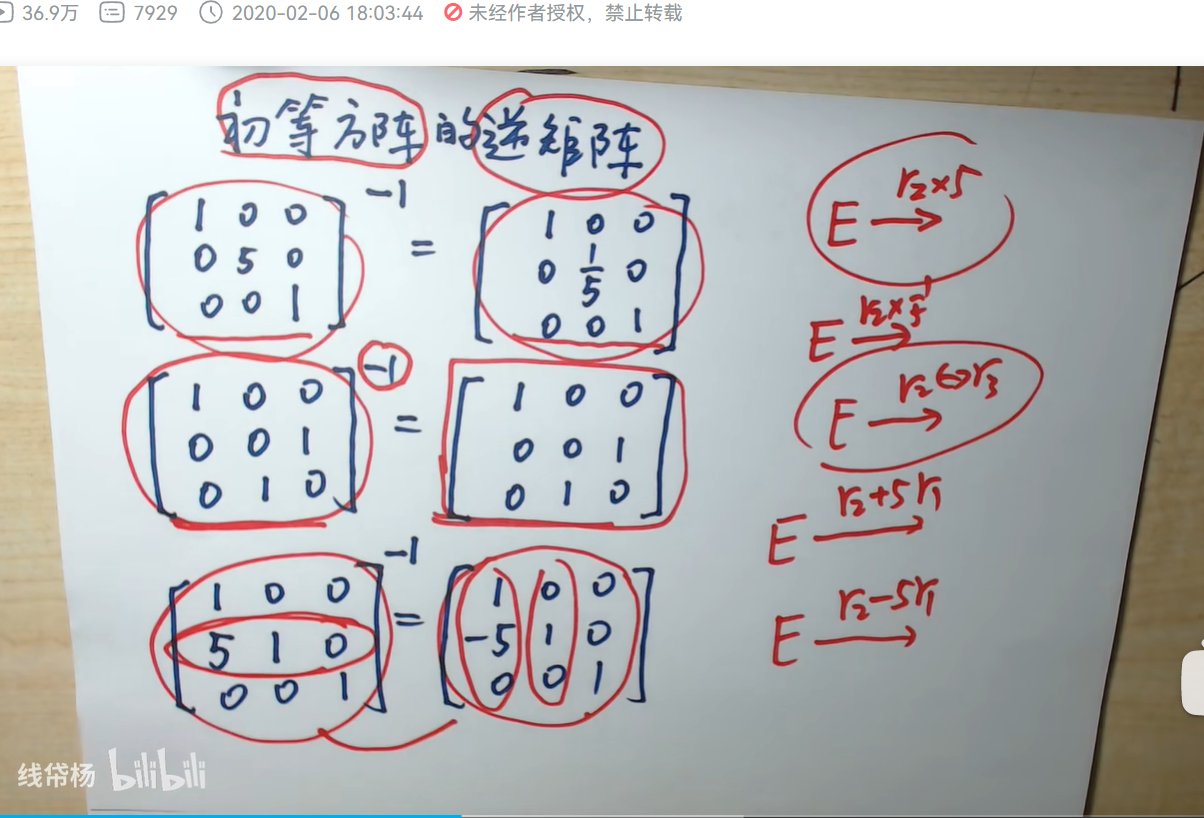 36.9万 7929 2020-02-06 18:03:44 未经作者授权，禁止转载
初等方阵的逆矩阵
[1 0 0
0 5 0
0 0 1]⁻¹ = [1 0 0
0 1/5 0
0 0 1]
[1 0 0
0 0 1
0 1 0]⁻¹ = [1 0 0
0 0 1
0 1 0]
[1 0 0
5 1 0
0 0 1]⁻¹ = [1 0 0
-5 1 0
0 0 1]
E r₂×5 →
E r₂×1/5 →
E r₂↔r₃ →
E r₂+5r₁ →
E r₂-5r₁ →
线帒杨 bilibili